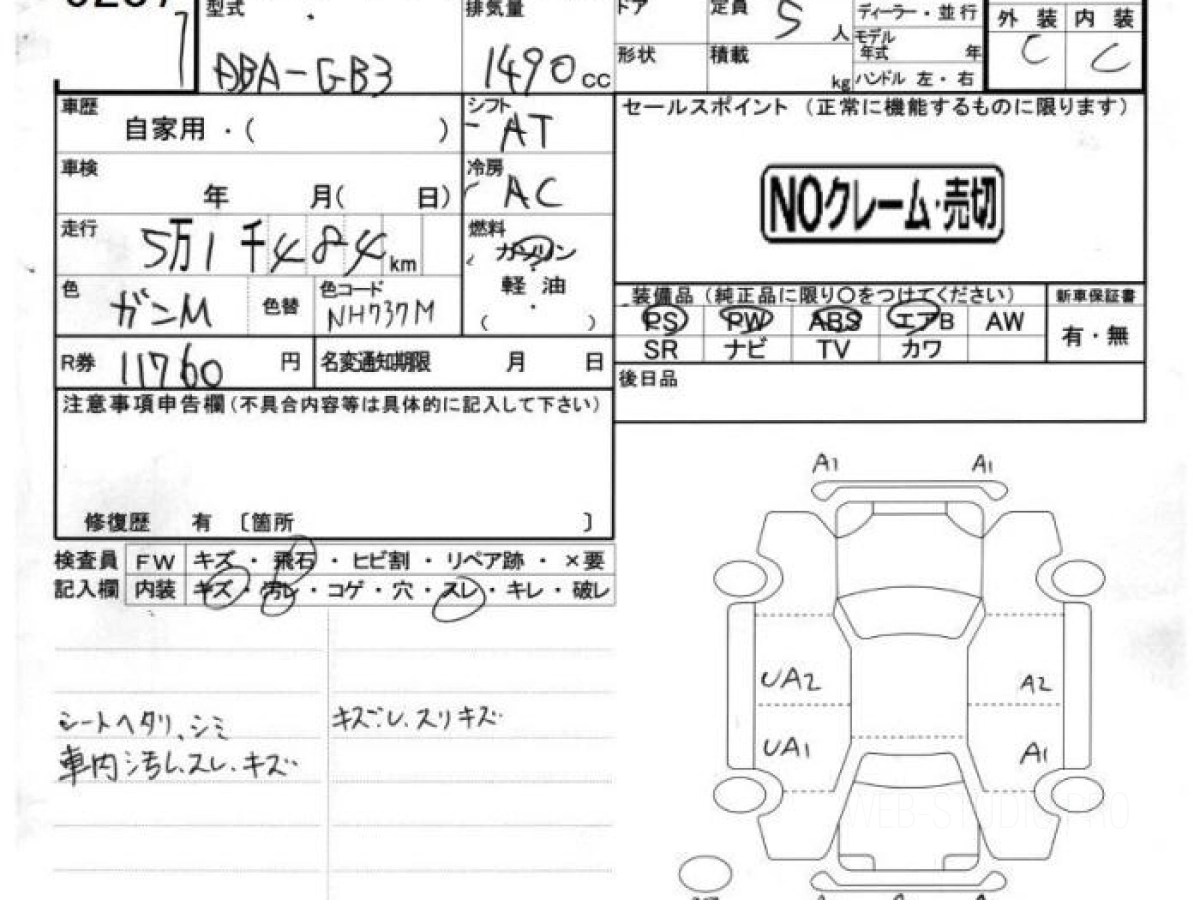 7
型式 排気量 ドア 定員 5 人 ディーラー・並行 外装 内装
DBA-GB3 1490 cc 形状 積載 kg モデル年式 年 C C
ハンドル 左・右
車歴 自家用・( ) シフト AT セールスポイント (正常に機能するものに限ります)
車検 年 月( 日) 冷房 AC NOクレーム・売切
走行 5万1千484km 燃料 ガソリン
軽油
( )
色 ガンM 色替 色コード NH737M
装備品(純正品に限り〇をつけてください) 新車保証書
PS PW ABS エアB AW 有・無
SR ナビ TV カワ
R券 11760 円 名変通知期限 月 日 後日品
注意事項申告欄(不具合内容等は具体的に記入して下さい)
修復歴 有 〔箇所 〕
検査員 FW キズ・飛石・ヒビ割・リペア跡・×要
記入欄 内装 キズ・汚レ・コゲ・穴・スレ・キレ・破レ
シートヘタリ、シミ
車内汚レ、スレ、キズ
キズ、スリキズ
A1 A1
UA2 A2
UA1 A1
WEB-STUDIO.PRO